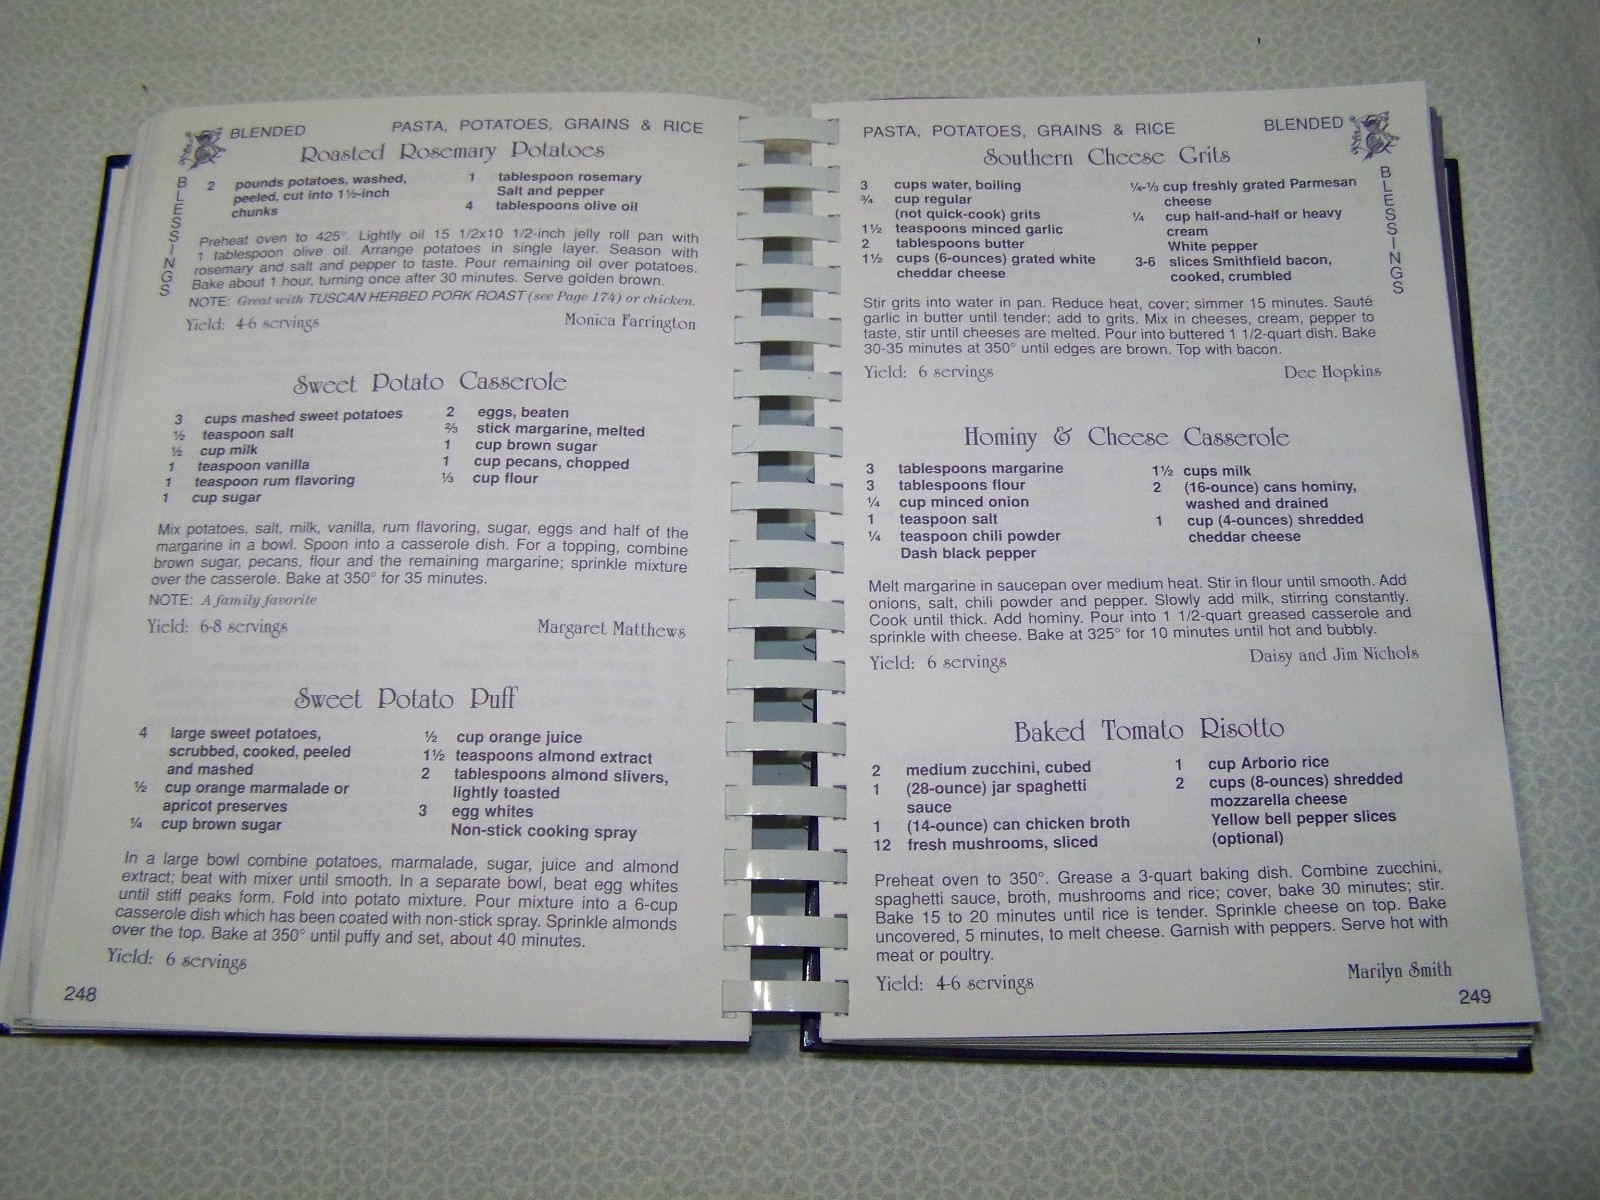 BLENDED
BLESSINGS
PASTA, POTATOES, GRAINS & RICE
Roasted Rosemary Potatoes
2 pounds potatoes, washed,
peeled, cut into 1½-inch
chunks
1 tablespoon rosemary
Salt and pepper
4 tablespoons olive oil
Preheat oven to 425°. Lightly oil 15 1/2x10 1/2-inch jelly roll pan with
1 tablespoon olive oil. Arrange potatoes in single layer. Season with
rosemary and salt and pepper to taste. Pour remaining oil over potatoes.
Bake about 1 hour, turning once after 30 minutes. Serve golden brown.
NOTE: Great with TUSCAN HERBED PORK ROAST (see Page 174) or chicken.
Yield: 4-6 servings Monica Farrington
Sweet Potato Casserole
3 cups mashed sweet potatoes
½ teaspoon salt
½ cup milk
1 teaspoon vanilla
1 teaspoon rum flavoring
1 cup sugar
2 eggs, beaten
⅔ stick margarine, melted
1 cup brown sugar
1 cup pecans, chopped
⅓ cup flour
Mix potatoes, salt, milk, vanilla, rum flavoring, sugar, eggs and half of the
margarine in a bowl. Spoon into a casserole dish. For a topping, combine
brown sugar, pecans, flour and the remaining margarine; sprinkle mixture
over the casserole. Bake at 350° for 35 minutes.
NOTE: A family favorite
Yield: 6-8 servings Margaret Matthews
Sweet Potato Puff
4 large sweet potatoes,
scrubbed, cooked, peeled
and mashed
½ cup orange marmalade or
apricot preserves
¼ cup brown sugar
½ cup orange juice
1½ teaspoons almond extract
2 tablespoons almond slivers,
lightly toasted
3 egg whites
Non-stick cooking spray
In a large bowl combine potatoes, marmalade, sugar, juice and almond
extract; beat with mixer until smooth. In a separate bowl, beat egg whites
until stiff peaks form. Fold into potato mixture. Pour mixture into a 6-cup
casserole dish which has been coated with non-stick spray. Sprinkle almonds
over the top. Bake at 350° until puffy and set, about 40 minutes.
Yield: 6 servings
248
PASTA, POTATOES, GRAINS & RICE
BLENDED
BLESSINGS
Southern Cheese Grits
3 cups water, boiling
¾ cup regular
(not quick-cook) grits
1½ teaspoons minced garlic
2 tablespoons butter
1½ cups (6-ounces) grated white
cheddar cheese
¼-⅓ cup freshly grated Parmesan
cheese
¼ cup half-and-half or heavy
cream
White pepper
3-6 slices Smithfield bacon,
cooked, crumbled
Stir grits into water in pan. Reduce heat, cover; simmer 15 minutes. Sauté
garlic in butter until tender; add to grits. Mix in cheeses, cream, pepper to
taste, stir until cheeses are melted. Pour into buttered 1 1/2-quart dish. Bake
30-35 minutes at 350° until edges are brown. Top with bacon.
Yield: 6 servings Dee Hopkins
Hominy & Cheese Casserole
3 tablespoons margarine
3 tablespoons flour
¼ cup minced onion
1 teaspoon salt
¼ teaspoon chili powder
Dash black pepper
1½ cups milk
2 (16-ounce) cans hominy,
washed and drained
1 cup (4-ounces) shredded
cheddar cheese
Melt margarine in saucepan over medium heat. Stir in flour until smooth. Add
onions, salt, chili powder and pepper. Slowly add milk, stirring constantly.
Cook until thick. Add hominy. Pour into 1 1/2-quart greased casserole and
sprinkle with cheese. Bake at 325° for 10 minutes until hot and bubbly.
Yield: 6 servings Daisy and Jim Nichols
Baked Tomato Risotto
2 medium zucchini, cubed
1 (28-ounce) jar spaghetti
sauce
1 (14-ounce) can chicken broth
12 fresh mushrooms, sliced
1 cup Arborio rice
2 cups (8-ounces) shredded
mozzarella cheese
Yellow bell pepper slices
(optional)
Preheat oven to 350°. Grease a 3-quart baking dish. Combine zucchini,
spaghetti sauce, broth, mushrooms and rice; cover, bake 30 minutes; stir.
Bake 15 to 20 minutes until rice is tender. Sprinkle cheese on top. Bake
uncovered, 5 minutes, to melt cheese. Garnish with peppers. Serve hot with
meat or poultry.
Yield: 4-6 servings Marilyn Smith
249